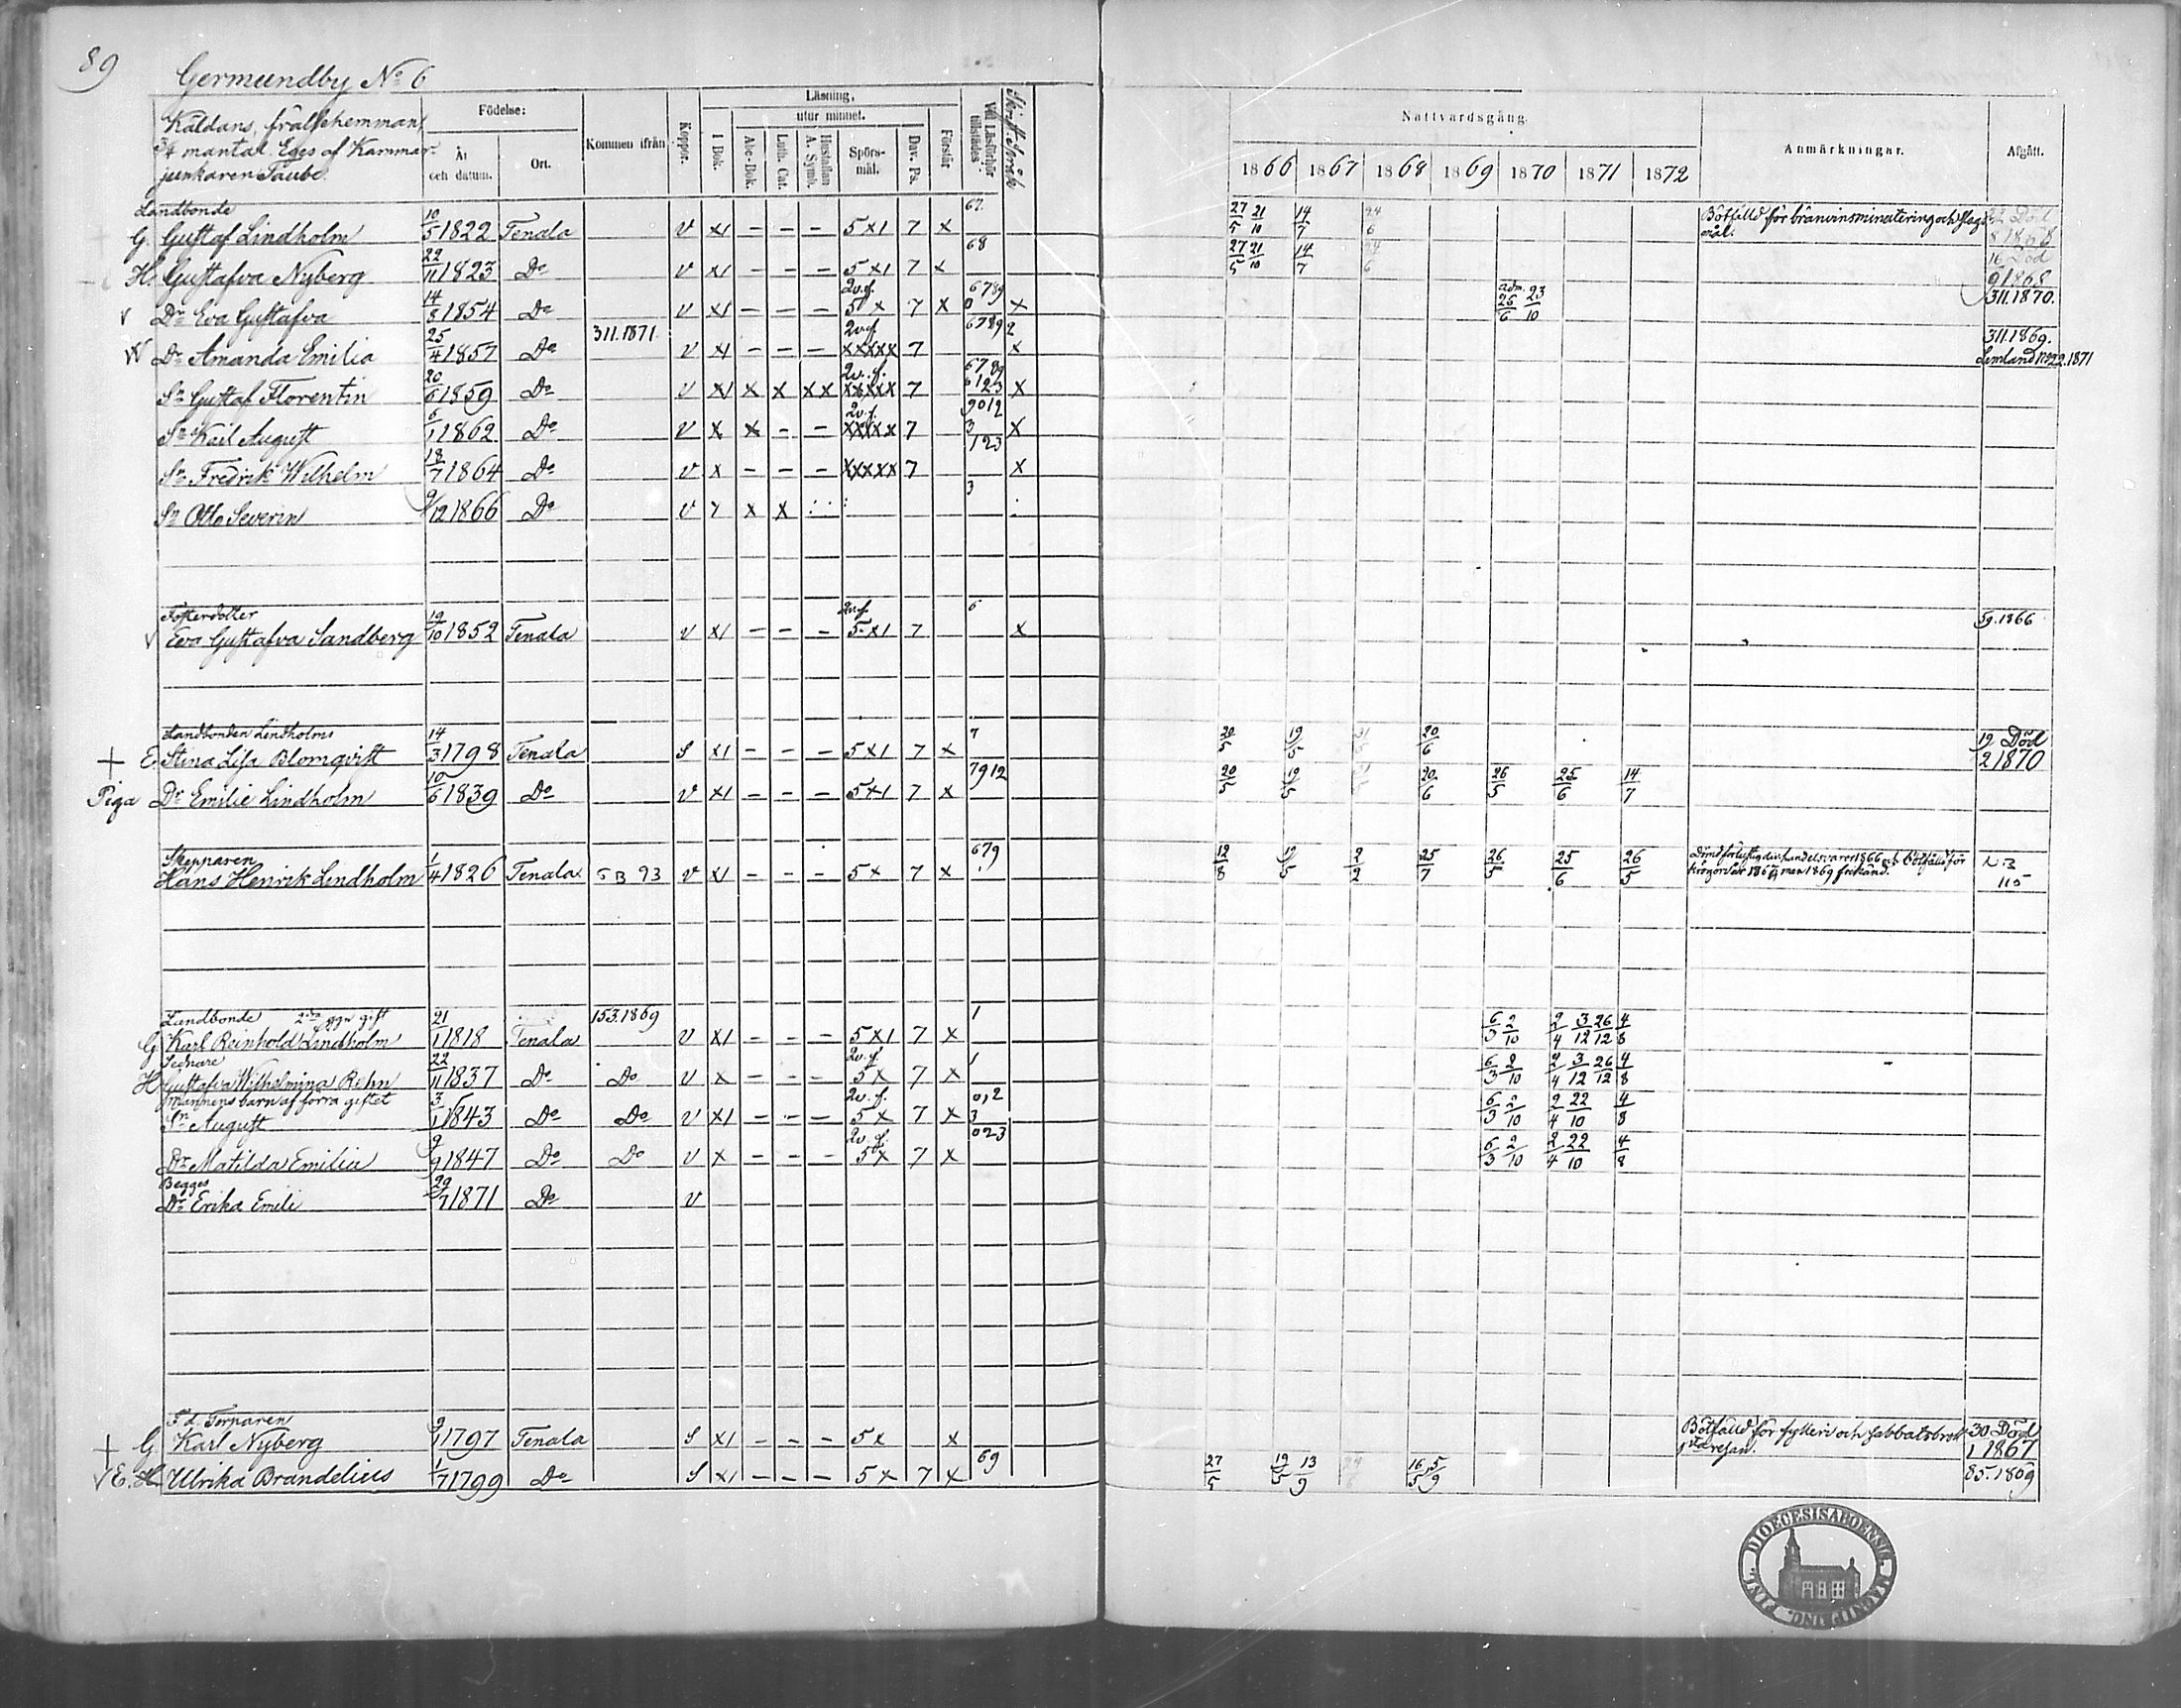 89
Germundby No 6
Kaldans, frälsehemman,
3/4 mantal. Eges af Kammar-
junkaren Taube.
Födelse: År och datum. Ort. Kommen ifrån Koppor. Läsning, I Bok. utur minnet. Abc-Bok. Luth. Cat. Hustaflan A. Symb. Spörs-mål. Dav. Ps. Förstår Vid Läsförhör tillstädes
Nattvardsgång. 1866 1867 1868 1869 1870 1871 1872 Anmärkningar. Afgått.
Landbonde
G. Gustaf Lindholm 10/5 1822 Tenala v x1 — — — 5x1 7 x 67 27/5 21/10 14/7 24/6 Bötfälld för bränvinsminutering och slags-
mål. Död 1868
H. Gustafva Nyberg 22/11 1823 Do v x1 — — — 5x1 7 x 68 27/5 21/10 14/7 24/6 16 Död
9 1868
v Dr Eva Gustafva 14/8 1854 Do v x1 — — — 5x 7 x 6789 0 x adm. 25/6 23/10 311.1870.
Dr Amanda Emilia 25/4 1857 Do 311.1871. v x1 — — — xxxxx 7 67892 x 311.1869.
Lemland 1871
Sn Gustaf Florentin 20/6 1859 Do v x1 x x xx xxxxx 7 6789 x
Sn Karl August 6/1 1862 Do v x x — — xxxxx 7 9012 3 x
Sn Fredrik Wilhelm 18/7 1864 Do v x — — — xxxxx 7 123 x
Sn Otto Severin 9/12 1866 Do v x x 3
Fosterdotter
v Eva Gustafva Sandberg 19/10 1852 Tenala v x1 — — — 5x1 7 6 x 59.1866
Landbonden Lindholms
+ E. Stina Lisa Blomqvist 14/3 1798 Tenala S x1 — — — 5x1 7 x 7 20/5 19/5 31/5 20/6 19 Död
2 1870
Piga Dr Emilie Lindholm 10/6 1839 Do v x1 — — — 5x1 7 x 7912 20/5 19/5 31/5 20/6 26/5 25/6 14/7
Skepparen
Hans Henrik Lindholm 1/4 1826 Tenala SB 93 v x1 — — — 5x 7 x 679 12/8 19/5 2/2 25/7 26/5 25/6 26/5
115
Landbonde 2dra ggn gift
G. Karl Reinhold Lindholm 21/1 1818 Tenala 153.1869 v x1 — — — 5x1 7 x 1 6/3 2/10 2/4 3/12 26/12 4/8
H Gustafva Wilhelmina Rehn 22/11 1837 Do Do v x — — — 5x 7 x 1 6/3 2/10 2/4 3/12 26/12 4/8
Mannens barn af förra giftet
Sn August 3/1 1843 Do Do v x1 — — — 5x 7 x 0,2 3 6/3 2/10 2/4 22/10 4/8
Dr Matilda Emilia 9/9 1847 Do Do v x — — — 5x 7 x 023 6/3 2/10 2/4 22/10 4/8
Begges
Dr Erika Emili 29/7 1871 Do v
F.d. Torparen
+ G. Karl Nyberg 9/1 1797 Tenala S x1 — — — 5x x Bötfälld för fylleri och sabbatsbrott
1sta resan. 30 Död
1 1867
v E. H. Ulrika Brandelius 1/7 1799 Do S x1 — — — 5x 7 x 69 27/5 19/5 13/9 16/5 5/9 85.1869
DIOECESIS ABOENSIS MAGNI DUC. FINL.